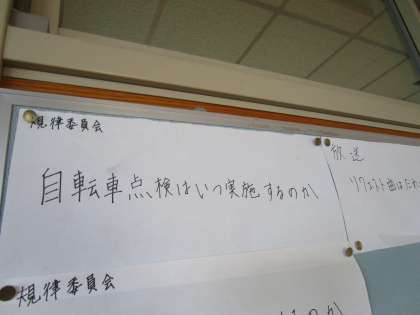 規律委員会
自転車点検はいつ実施するのか
放送
リクエスト曲はだれ
規律委員会
るのか